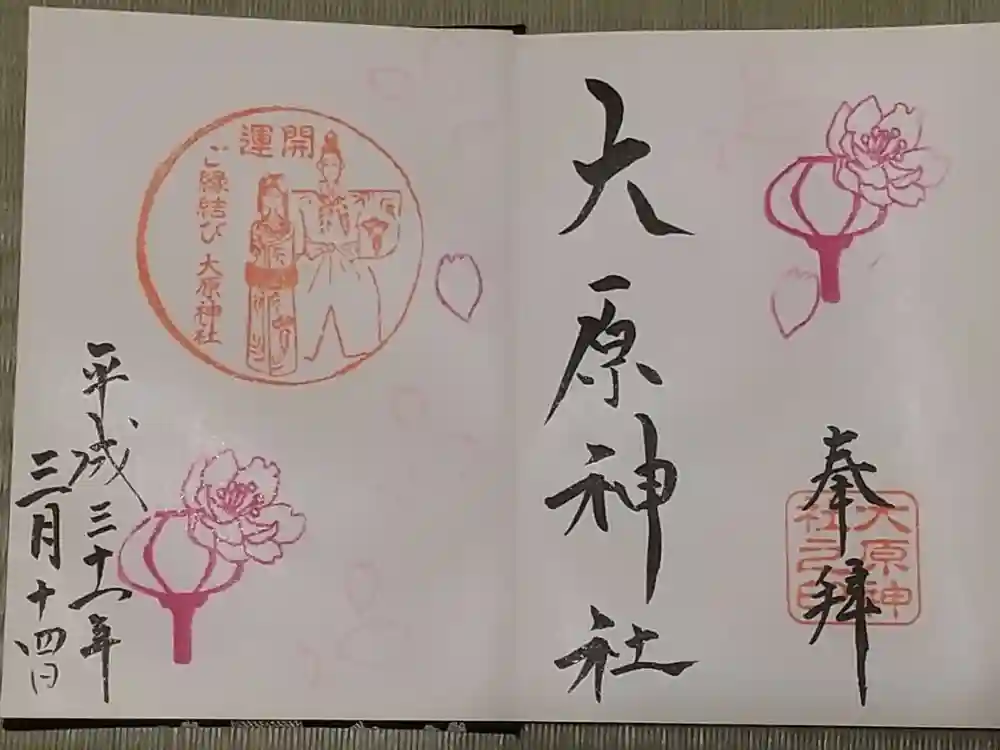 奉拝
大原神社之印
大原神社
開運
ご縁結び・大原神社
平成三十一年
三月十四日